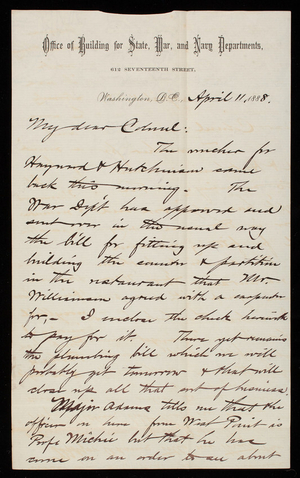 Office of Building for State, War, and Navy Departments,
612 SEVENTEENTH STREET,
Washington, D.C., April 11, 1888.
My dear Colonel:
The voucher for
Hayward & Hutchinson came
back this morning. The
War Dept has approved and
sent over in the usual way
the bill for fitting up and
building the counter & partition
in the restaurant that Mr.
Williamson agreed with a carpenter
for,- I enclose the check herewith
to pay for it. There yet remains
the plumbing bill which we will
probably get tomorrow & that will
close up all that sort of business.
Major Adams tells me that the
officer on here from West Point is
Prof. Michie but that he has
come on an order to see about